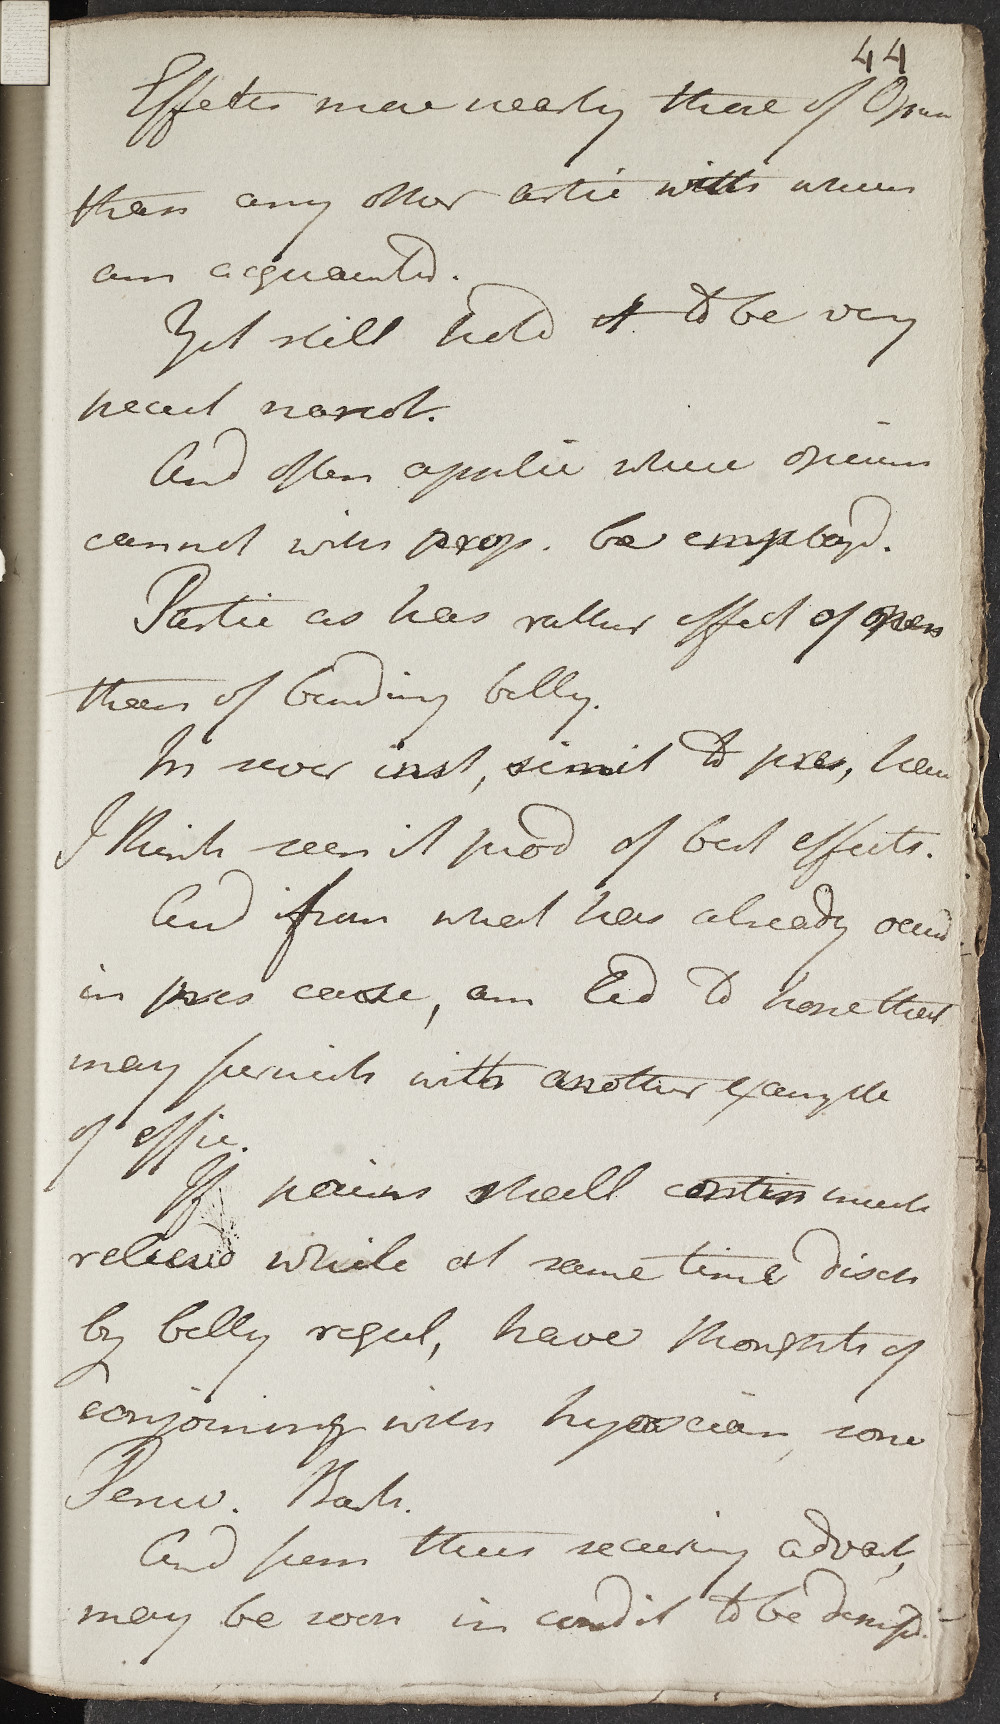 44
Effects more nearly those of Opium
than any other artic with whim
am acquainted.
Yet still hold it to be very
peculi narcot.
And often applic where opium
cannot with prop. be employd.
Partic as has rather effect of open
than of binding belly.
In sever inst, simil to pres, have
I think seen it prod of best effects.
And from what has already occurd
in pres case, am led to hope that
may furnish with another example
of effic.
If pains shall contin much
relievd while at same time disch
by belly regul, have thoughts of
conjoining with hyoscian, some
Peruv. Bark.
And from thus securing advant,
may be soon in condit to be dismissd.